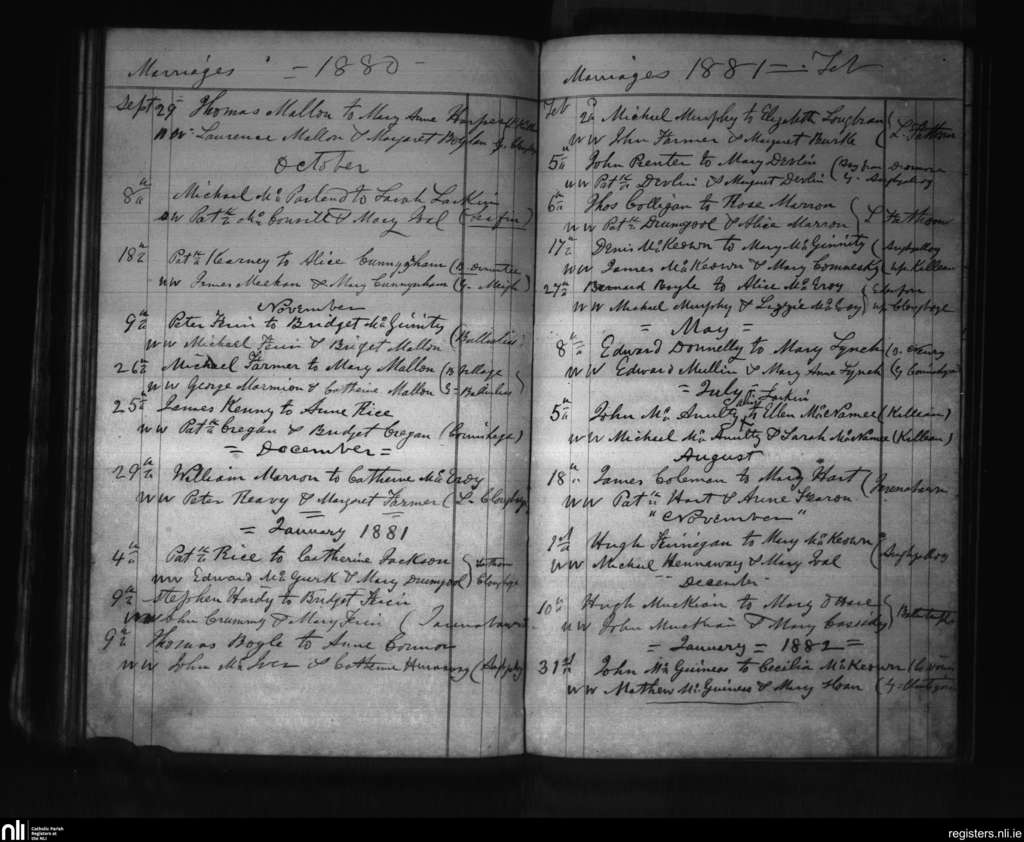 Marriages = 1880 -
Sept 29 Thomas Mallon to Mary Anne Harper
ww Laurence Mallon & Margaret Boylan
October
8th Michael McParland to Sarah Larkin
ww Patk McConvill & Mary Loal
18th Patk Kearney to Alice Cunnyngham
ww James Meehan & Mary Cunnyngham
November
9th Peter Finn to Bridget McGinnity
ww Michael Finn & Briget Mallon
26th Michael Farmer to Mary Mallon (B. Village
ww George Marmion & Catherine Mallon
25th James Kenny to Anne Rice
ww Patk Cregan & Bridget Cregan
= December =
29th William Marron to Catherine McEroy
ww Peter Keavy & Margaret Farmer
= January 1881
4th Patk Rice to Catherine Jackson
ww Edward McGurk & Mary Drumgool
9th Stephen Hardy to Bridget Finn
John Crummy & Mary Finn
9th Thomas Boyle to Anne Connor
ww John McIver & Catherine
Marriages 1881 = Feb
Feb 2d Michael Murphy to Elizabeth Longbran
ww John Farmer & Margaret Burke
5th John Renter to Mary Devlin
ww Patk Devlin & Margaret Devlin
6th Thos Colligan to Rose Marron
ww Patk Drumgool & Alice Marron
17th Denis McKeown to Mary McGinnity
ww James McKeown & Mary Comnesky (up. Killean
27th Bernard Boyle to Alice McEroy
ww Michael Murphy & Lizzie McEroy
= May =
8th Edward Donnelly to Mary Lynch
ww Edward Mullin & Mary Anne Lynch
= July =
Larkin
5th John McAnulty to Ellen McNamee (Killean)
ww Michael McAnulty & Sarah McNamee (Killean)
August
18th James Coleman to Mary Hart
ww Patk Hart & Anne Fearon
"November"
1st Hugh Finnegan to Mary McKeown
ww Michael Hennaway & Mary Loal
December
10th Hugh MacKian to Mary O'Hare
ww John MacKian & Mary Cassidy
= January = 1882 =
31st John McGuiness to Cecilia McKeown
ww Mathew McGuiness & Mary Hoan
nli
Catholic Parish
Registers at
the NLI
registers.nli.ie